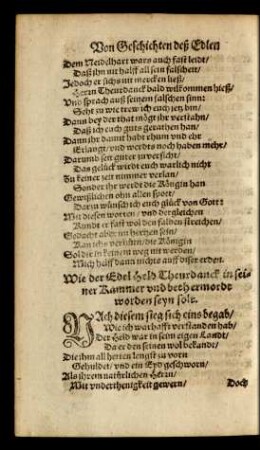 Von Geschichten deß Edlen
Dem Neidelhart wars auch fast leidt/
Daß ihn nit halff all sein falscheit/
Jedoch er sichs nit mercken ließ/
Herrn Theurdanck bald wilkommen hieß/
Vnd sprach auß seinem falschen sinn:
Seht zu wie trew ich euch jetz bin/
Dann bey der that mögt ihr verstahn/
Daß ich euch guts gerathen han/
Dann ihr damit habt rhum vnd ehr
Erlangt/ vnd werdts noch haben mehr/
Darumb seit guter zuversicht/
Das gelück wirdt euch warlich nicht
Zu keiner zeit nimmer verlan/
Sonder ihr werdt die Königin han
Gewißlichen ohn allen spott/
Darzu wünsch ich euch glück von Gott:
Mit diesen worten/ vnd dergleichen
Kundt er fast wol den falben streichen/
Gedacht aber im hertzen sein/
Kan ichs verhüten/ die Königin
Soldt in keinem weg nit werden/
Mich hülff dann nichts auff diser erden.
Wie der Edel Held Theurdanck in seiner
Kammer vnd beth ermordt
worden seyn solt.
NAch diesem sieg sich eins begab/
Wie ich warhafft verstanden hab/
Der Held war in seim eigen Landt/
Da er den seinen wol bekandt/
Die ihm all hetten lengst zu vorn
Gehuldet/ vnd ein Eyd geschworn/
Als ihrem natürlichen Herrn/
Mit vnderthenigkeit gewern/
Doch